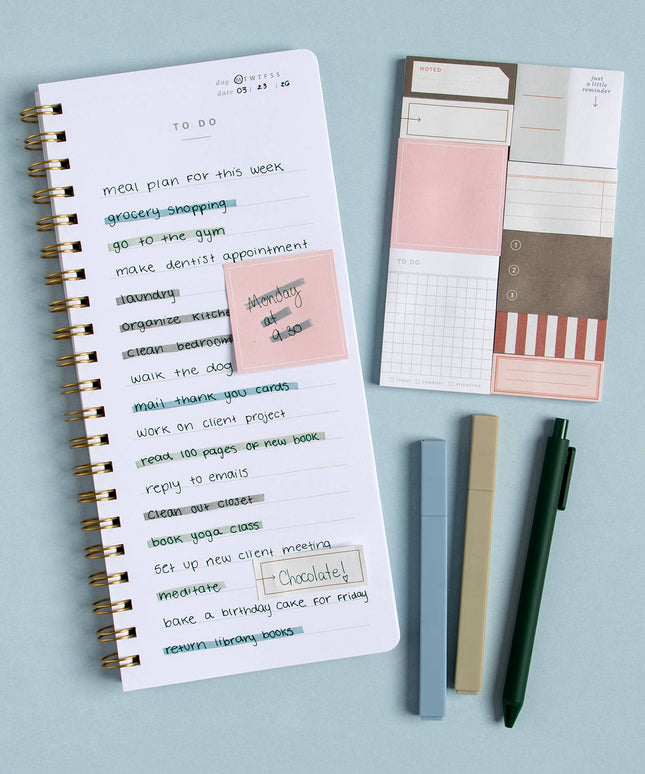 day M T W T F S S
date 03 / 23 / 26
TO DO
meal plan for this week
grocery shopping
go to the gym
make dentist appointment
laundry
organize kitche
clean bedroom
walk the dog
mail thank you cards
work on client project
read 100 pages of new book
reply to emails
clean out closet
book yoga class
set up new client meeting
meditate
bake a birthday cake for Friday
return library books
Monday
at
9:30
Chocolate!
NOTED
just
a little
reminder
1
2
3
TO DO
TODAY SOMEDAY WHENEVER